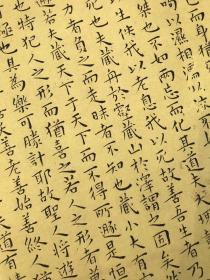 呴以濕相濡以
桀也不如兩忘而化其道夫大
生佚我以老息我以死故善吾生者乃
夫藏舟於壑藏山於澤謂之固矣
力者負之而走昧者不知也藏小大有
遯若夫藏天下於天下而不得所遯是恒
也特犯人之形而猶喜之若人之形
極也其為樂可勝計耶故聖人將遊
夭善老善始善終人